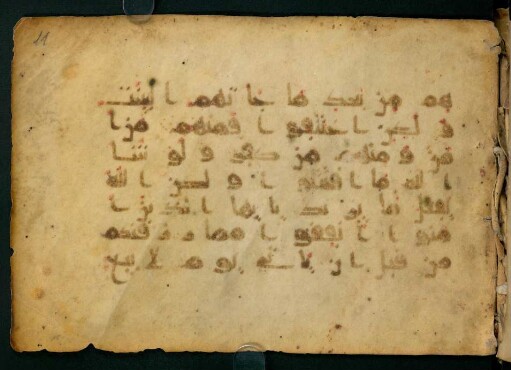 هم من بعد ما جاتهم البينت
ولكن اختلفوا فمنهم من ا
من ومنهم من كفر ولو شا
الله ما اقتتلوا ولكن الله
يفعل ما يريد يايها الذين ا
منوا انفقوا مما رزقنكم
من قبل ان ياتي يوم لا بيع